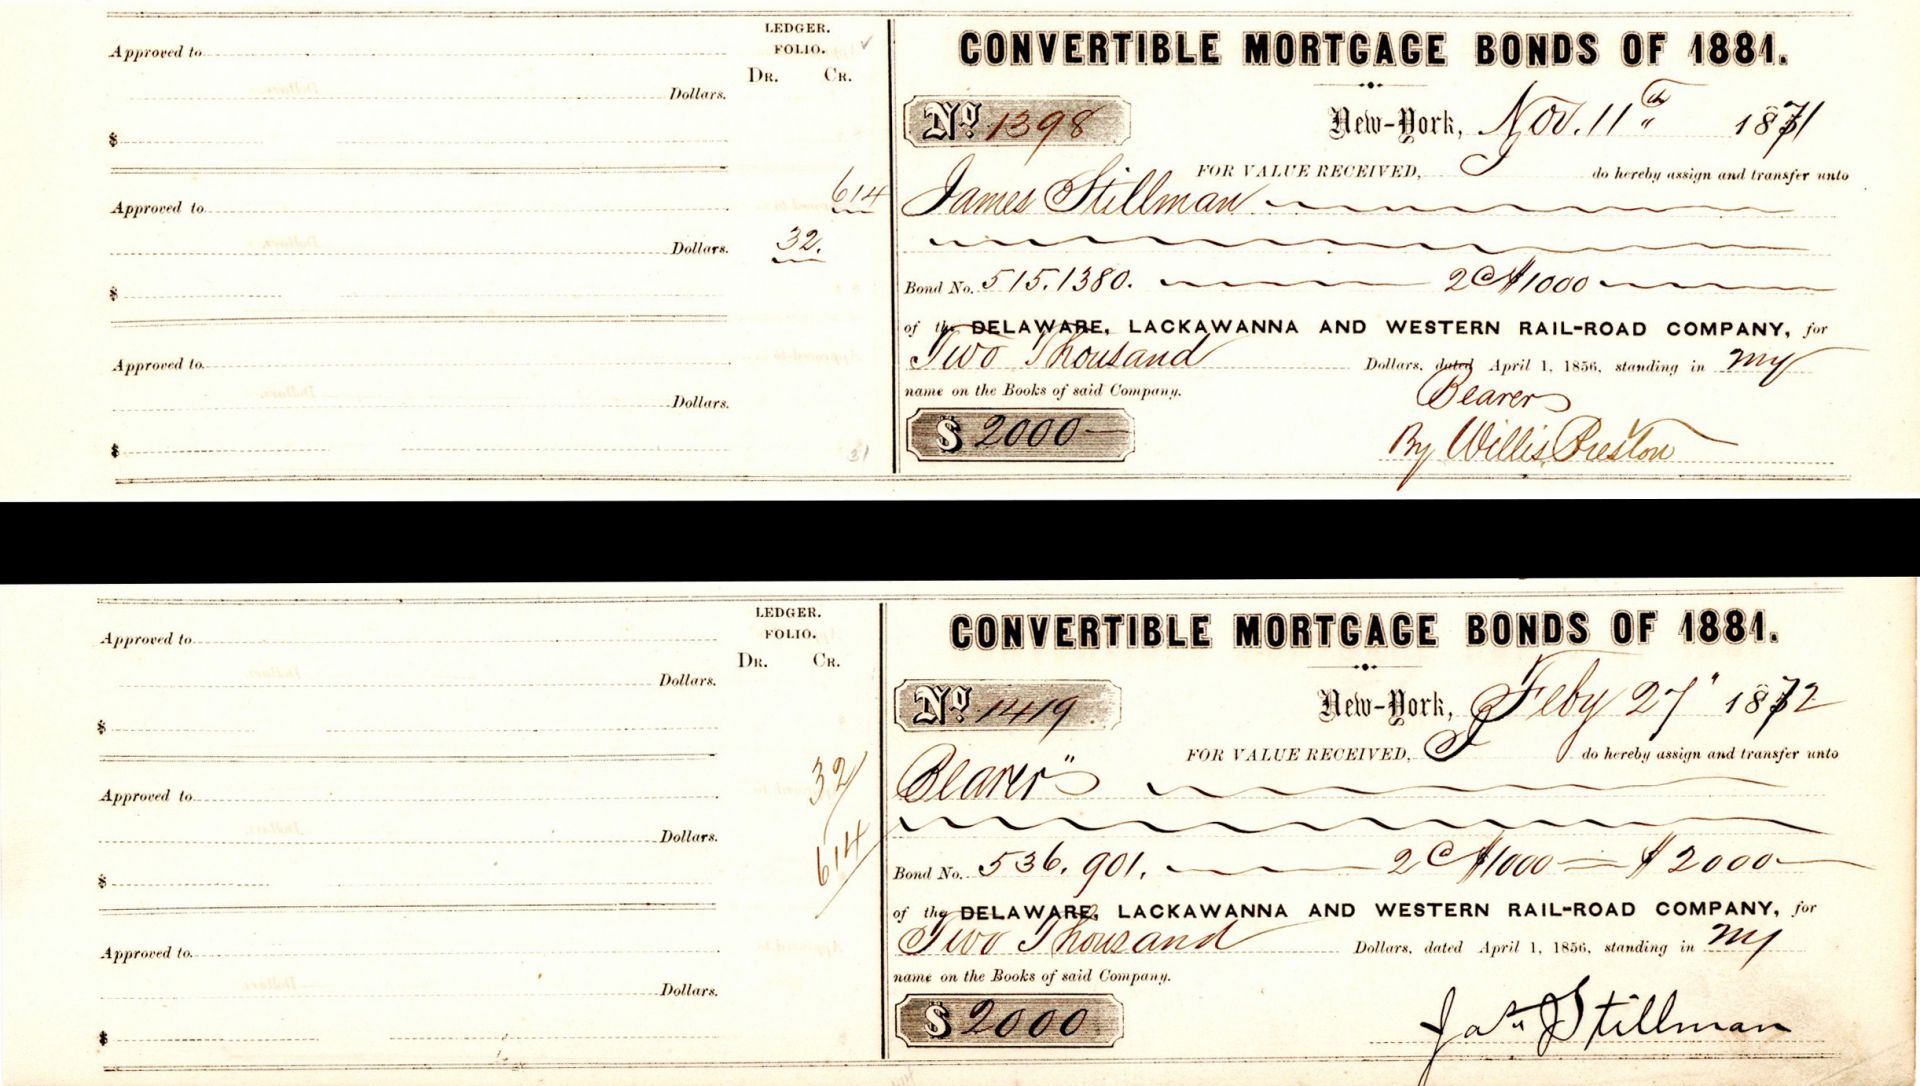 LEDGER.
FOLIO.
DR. CR.
Approved to
Dollars.
$
614
Approved to
32.
Dollars.
$
Approved to
Dollars.
$
31
CONVERTIBLE MORTGAGE BONDS OF 1881.
No 1398
New-York, Nov. 11th 1871
FOR VALUE RECEIVED, I do hereby assign and transfer unto
James Stillman
Bond No. 515.1380. 2 @ $1000
of the DELAWARE, LACKAWANNA AND WESTERN RAIL-ROAD COMPANY, for
Two Thousand Dollars, dated April 1, 1856, standing in my
name on the Books of said Company.
Bearer
$ 2000
By Willis Preston
LEDGER.
FOLIO.
DR. CR.
Approved to
Dollars.
$
32
Approved to
Dollars.
614
$
Approved to
Dollars.
$
CONVERTIBLE MORTGAGE BONDS OF 1881.
No 1419
New-York, Feby 27" 1872
FOR VALUE RECEIVED, I do hereby assign and transfer unto
Bearer"
Bond No. 536. 901. 2 @ $1000 = $2000
of the DELAWARE, LACKAWANNA AND WESTERN RAIL-ROAD COMPANY, for
Two Thousand Dollars, dated April 1, 1856, standing in my
name on the Books of said Company.
$ 2000
Jas Stillman